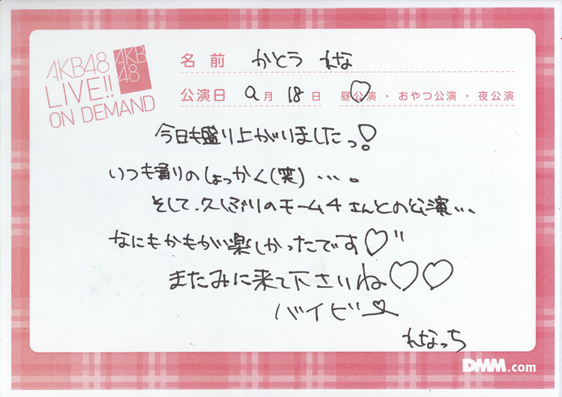 AKB48
LIVE!!
ON DEMAND
AKB
48
名前 かとう れな
公演日 9月 18日 昼公演・おやつ公演・夜公演
今日も盛り上がりましたっ!
いつも通りのしょっかく(笑)…。
そして、久しぶりのチーム4さんとの公演…
なにもかもがい楽しかったです♡"
またみに来て下さいね♡♡
バイビー
れなっち
DMM.com